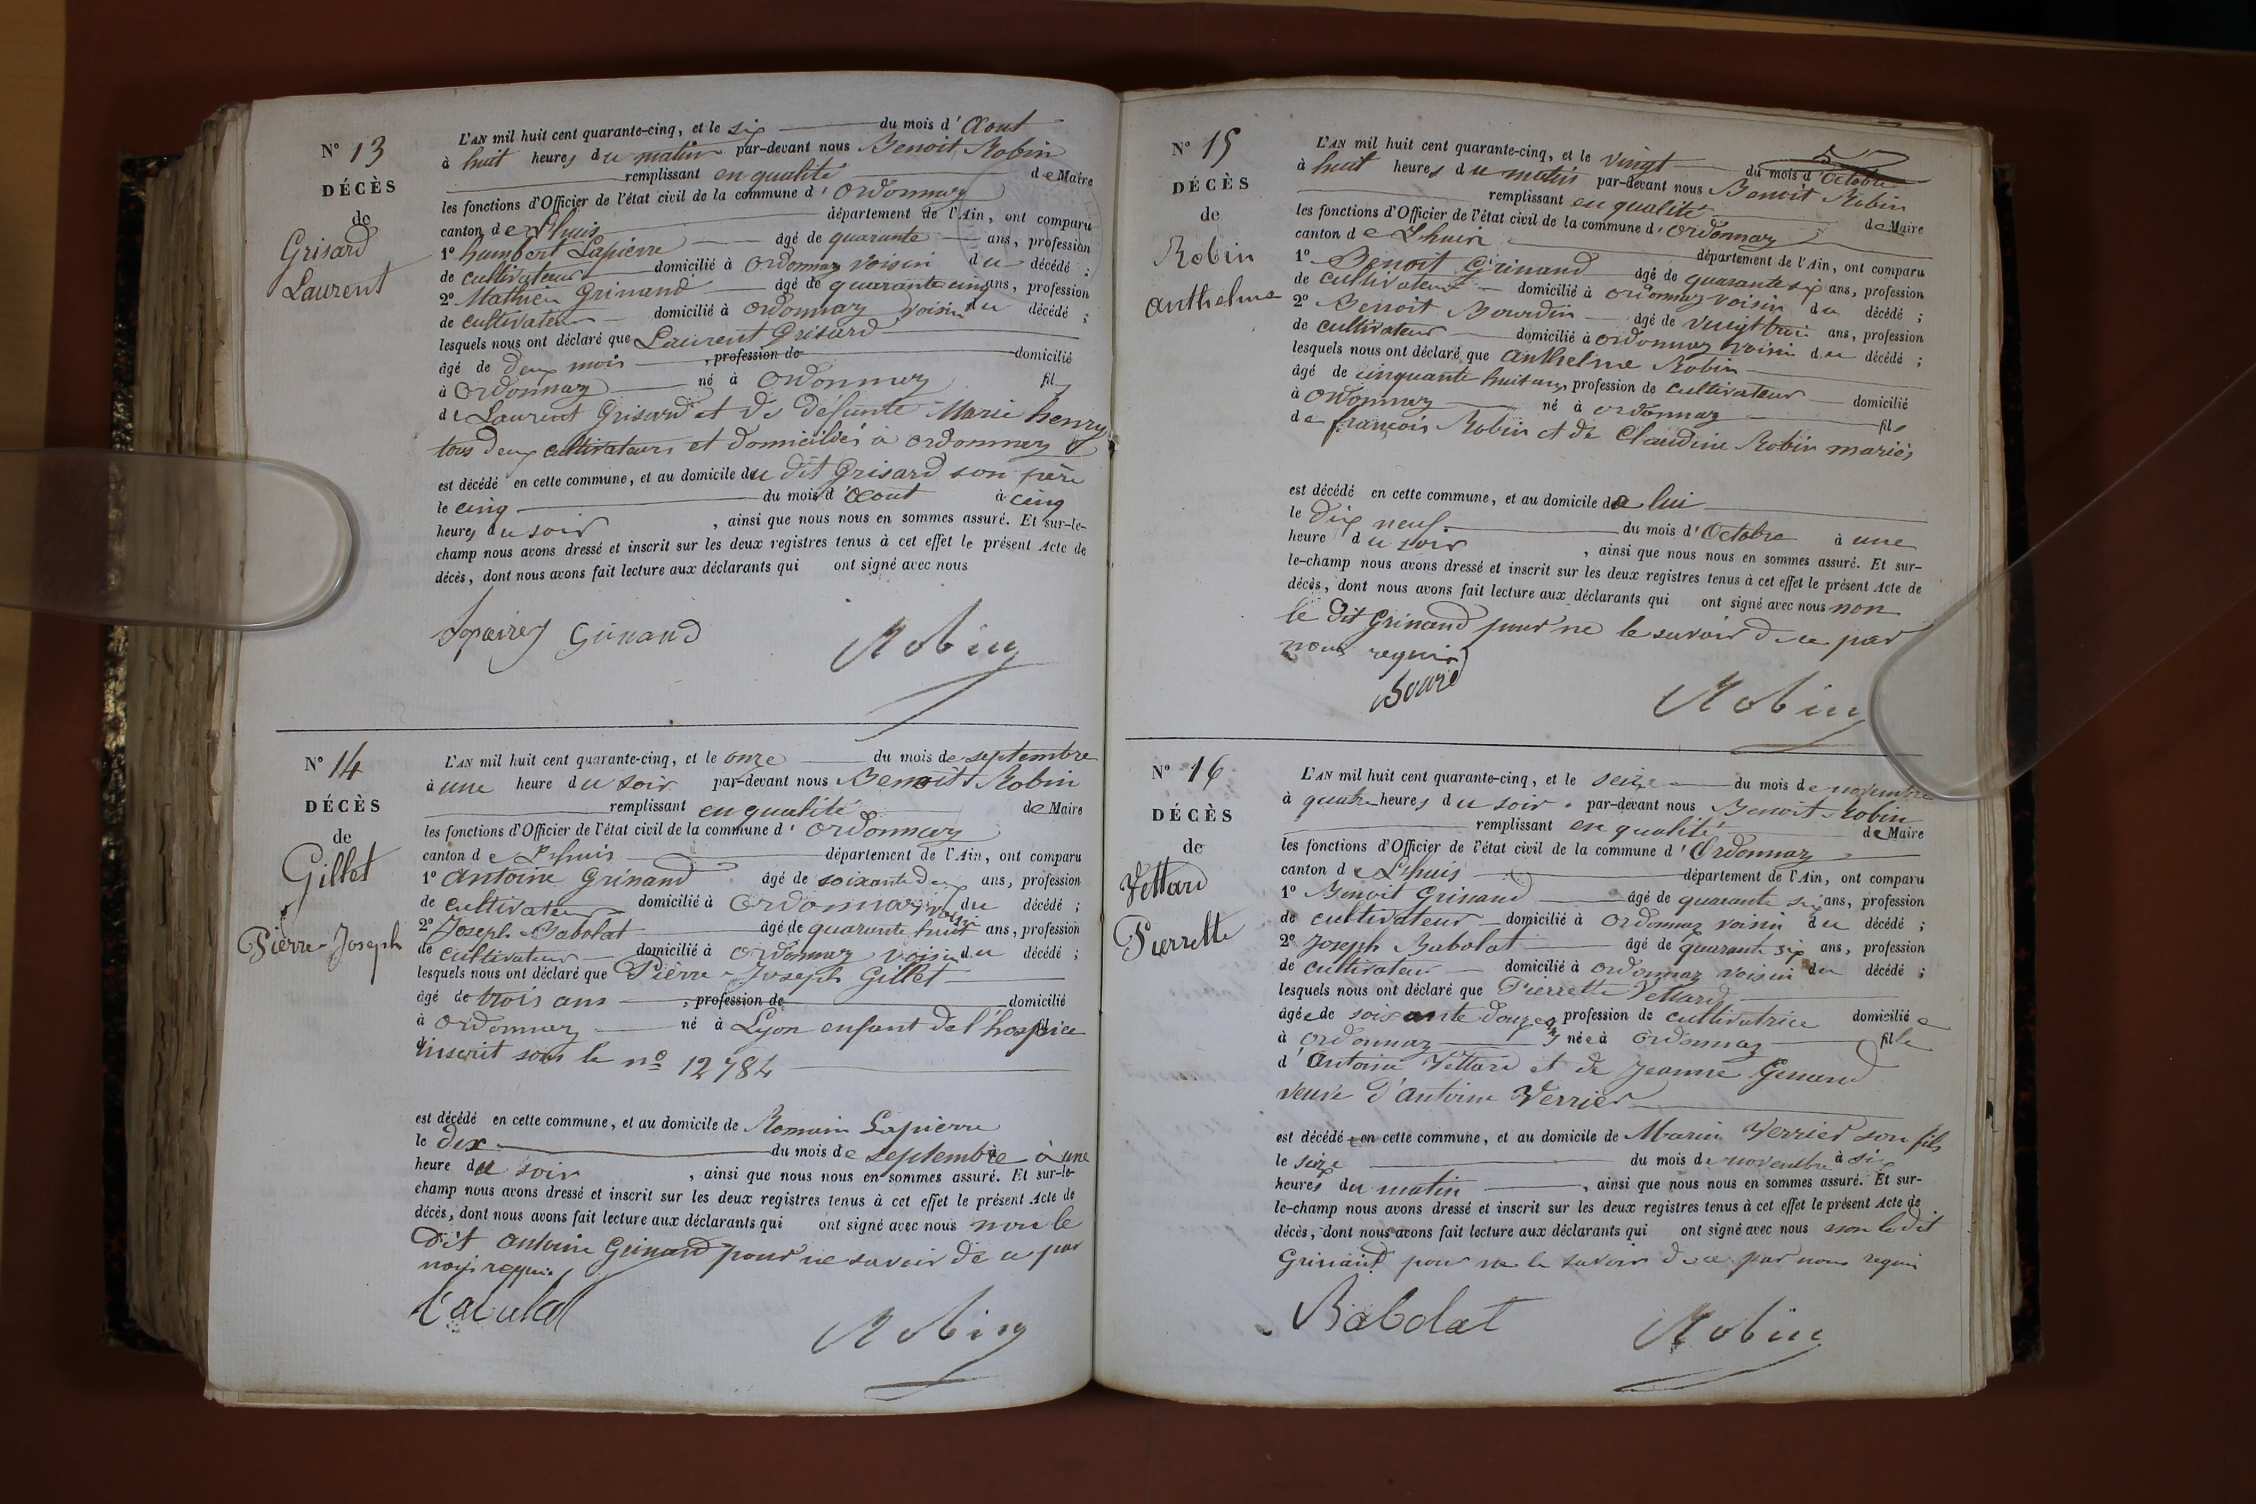 N° 13
DÉCÈS
de
Grisard
Laurent
L'AN mil huit cent quarante-cinq, et le six du mois d'Aout
à huit heures du matin par-devant nous Benoit Robin
remplissant en qualité de Maire
les fonctions d'Officier de l'état civil de la commune d'Ordonnaz
canton de Lhuis département de l'Ain, ont comparu
1° humbert Lapierre âgé de quarante ans, profession
de cultivateur domicilié à Ordonnaz voisin du décédé ;
2° Mathieu Grinand âgé de quarante cinq ans, profession
de cultivateur domicilié à Ordonnaz voisin du décédé ;
lesquels nous ont déclaré que Laurent Grisard
âgé de deux mois , profession de domicilié
à Ordonnaz né à Ordonnaz fils
de Laurent Grisard et de défunte Marie henry
tous deux cultivateurs et domiciliés à Ordonnaz
est décédé en cette commune, et au domicile du dit Grisard son père
le cinq du mois d'Aout à cinq
heures du soir , ainsi que nous nous en sommes assuré. Et sur-le-
champ nous avons dressé et inscrit sur les deux registres tenus à cet effet le présent Acte de
décès, dont nous avons fait lecture aux déclarants qui ont signé avec nous
Grinand Robin
N° 14
DÉCÈS
de
Gillet
Pierre-Joseph
L'AN mil huit cent quarante-cinq, et le onze du mois de septembre
à une heure du soir par-devant nous Benoit Robin
remplissant en qualité de Maire
les fonctions d'Officier de l'état civil de la commune d'Ordonnaz
canton de Lhuis département de l'Ain, ont comparu
1° Antoine Grinand âgé de soixante deux ans, profession
de cultivateur domicilié à Ordonnaz voisin du décédé ;
2° Joseph Babolat âgé de quarante huit ans, profession
de cultivateur domicilié à Ordonnaz voisin du décédé ;
lesquels nous ont déclaré que Pierre-Joseph Gillet
âgé de trois ans , profession de domicilié
à Ordonnaz né à Lyon enfant de l'hospice
inscrit sous le n° 12784
est décédé en cette commune, et au domicile de Romain Lapierre
le dix du mois de septembre à une
heure du soir , ainsi que nous nous en sommes assuré. Et sur-le-
champ nous avons dressé et inscrit sur les deux registres tenus à cet effet le présent Acte de
décès, dont nous avons fait lecture aux déclarants qui ont signé avec nous non le
dit Antoine Grinand pour ne savoir de ce par
nous requis
Robin
N° 15
DÉCÈS
de
Robin
Anthelme
L'AN mil huit cent quarante-cinq, et le vingt du mois d'Octobre
à huit heures du matin par-devant nous Benoit Robin
remplissant en qualité de Maire
les fonctions d'Officier de l'état civil de la commune d'Ordonnaz
canton de Lhuis département de l'Ain, ont comparu
1° Benoit Grinand âgé de quarante six ans, profession
de cultivateur domicilié à Ordonnaz voisin du décédé ;
2° Benoit Bourdin âgé de vingt trois ans, profession
de cultivateur domicilié à Ordonnaz voisin du décédé ;
lesquels nous ont déclaré que Anthelme Robin
âgé de cinquante huit ans, profession de cultivateur domicilié
à Ordonnaz né à Ordonnaz fils
de françois Robin et de Claudine Robin mariés
est décédé en cette commune, et au domicile de lui
le dix neuf du mois d'Octobre à une
heure du soir , ainsi que nous nous en sommes assuré. Et sur-
le-champ nous avons dressé et inscrit sur les deux registres tenus à cet effet le présent Acte de
décès, dont nous avons fait lecture aux déclarants qui ont signé avec nous non
le dit Grinand pour ne le savoir de ce par
nous requis
Robin
N° 16
DÉCÈS
de
Vettard
Pierrette
L'AN mil huit cent quarante-cinq, et le seize du mois de novembre
à quatre heures du soir par-devant nous Benoit Robin
remplissant en qualité de Maire
les fonctions d'Officier de l'état civil de la commune d'Ordonnaz
canton de Lhuis département de l'Ain, ont comparu
1° Benoit Grinand âgé de quarante six ans, profession
de cultivateur domicilié à Ordonnaz voisin du décédé ;
2° Joseph Babolat âgé de quarante six ans, profession
de cultivateur domicilié à Ordonnaz voisin du décédé ;
lesquels nous ont déclaré que Pierrette Vettard
âgée de soixante douze profession de cultivatrice domiciliée
à Ordonnaz née à Ordonnaz fille
d'Antoine Vettard et de Jeanne Genand
veuve d'Antoine Verrier
est décédé en cette commune, et au domicile de Marin Verrier son fils
le seize du mois de novembre à six
heures du matin , ainsi que nous nous en sommes assuré. Et sur-
le-champ nous avons dressé et inscrit sur les deux registres tenus à cet effet le présent Acte de
décès, dont nous avons fait lecture aux déclarants qui ont signé avec nous non le dit
Grinand pour ne le savoir de ce par nous requis
Babolat Robin